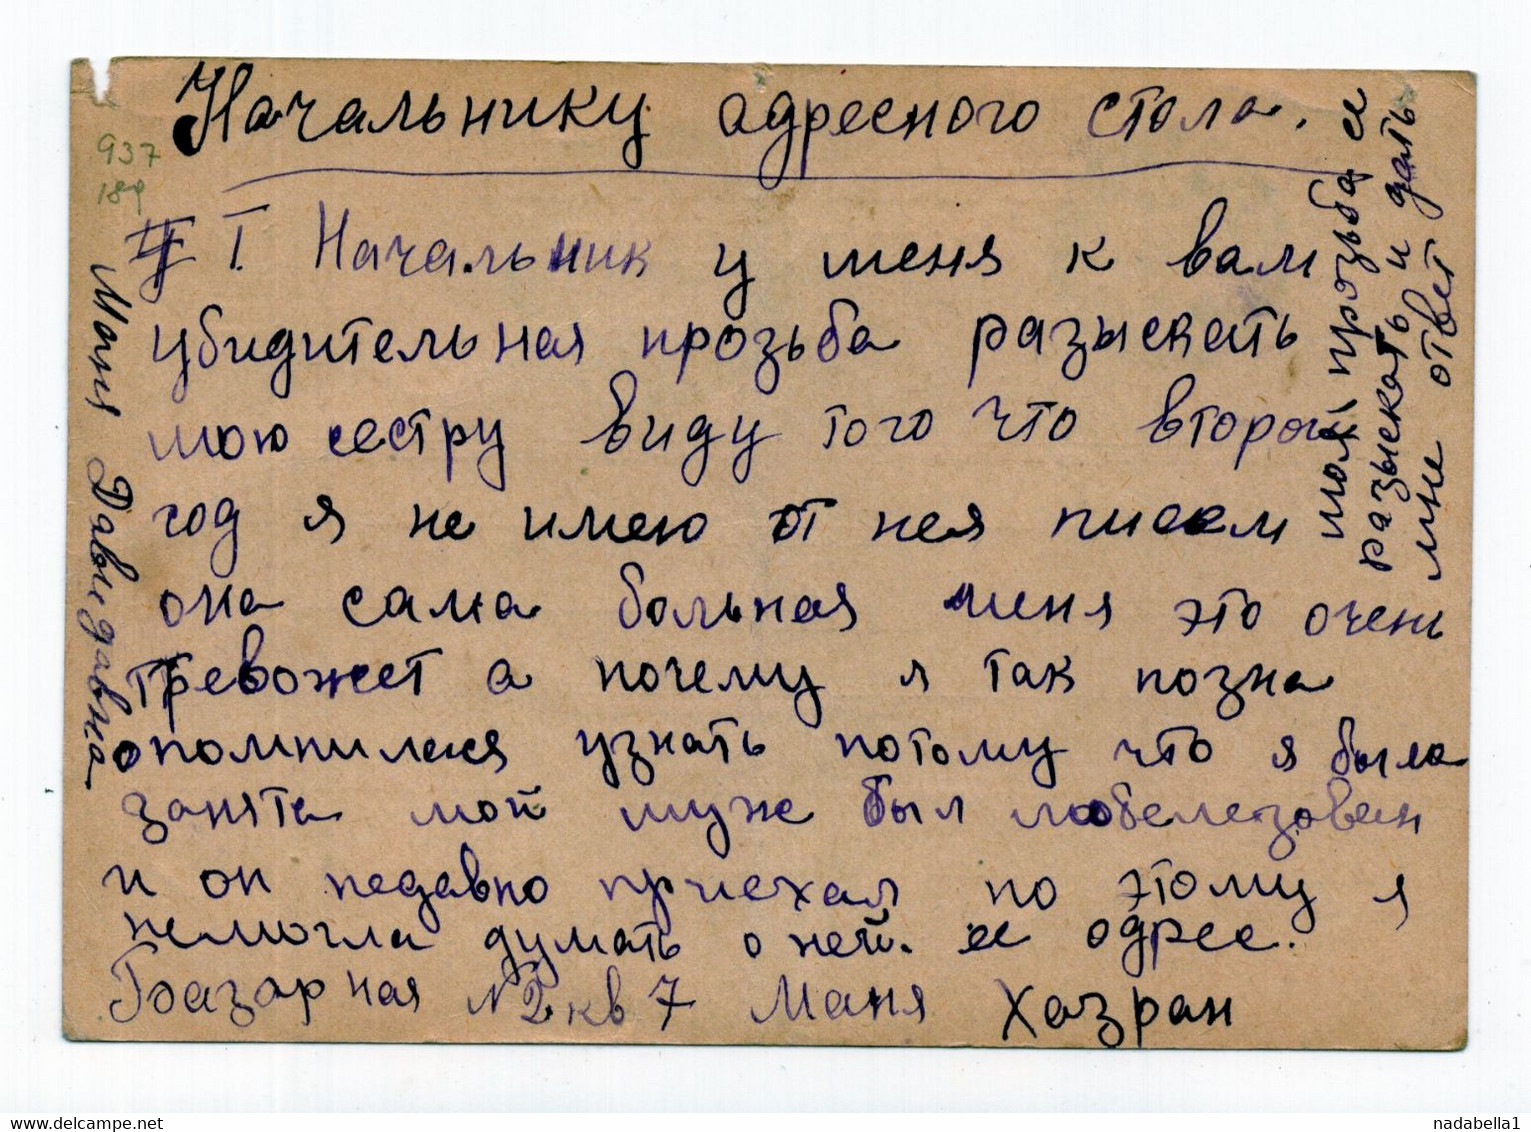 Начальнику адресного стола.
937
189
Т. Начальник у меня к вам
убидительная прозьба разыскать
мою сестру виду того что второй
год я не имею от нея писем
она сама больная меня это очень
тревожет а почему я так позна
опомнилася узнать потому что я была
занята мой муж был мобелезован
и он недавно приехал по этому я
немогла думать о ней. ее адрес.
Базарная №2 кв 7 Маня Хазран
Маня Давидавна
моя прозьба ее
разыскать и дать
мне ответ
www.delcampe.net
nadabella1